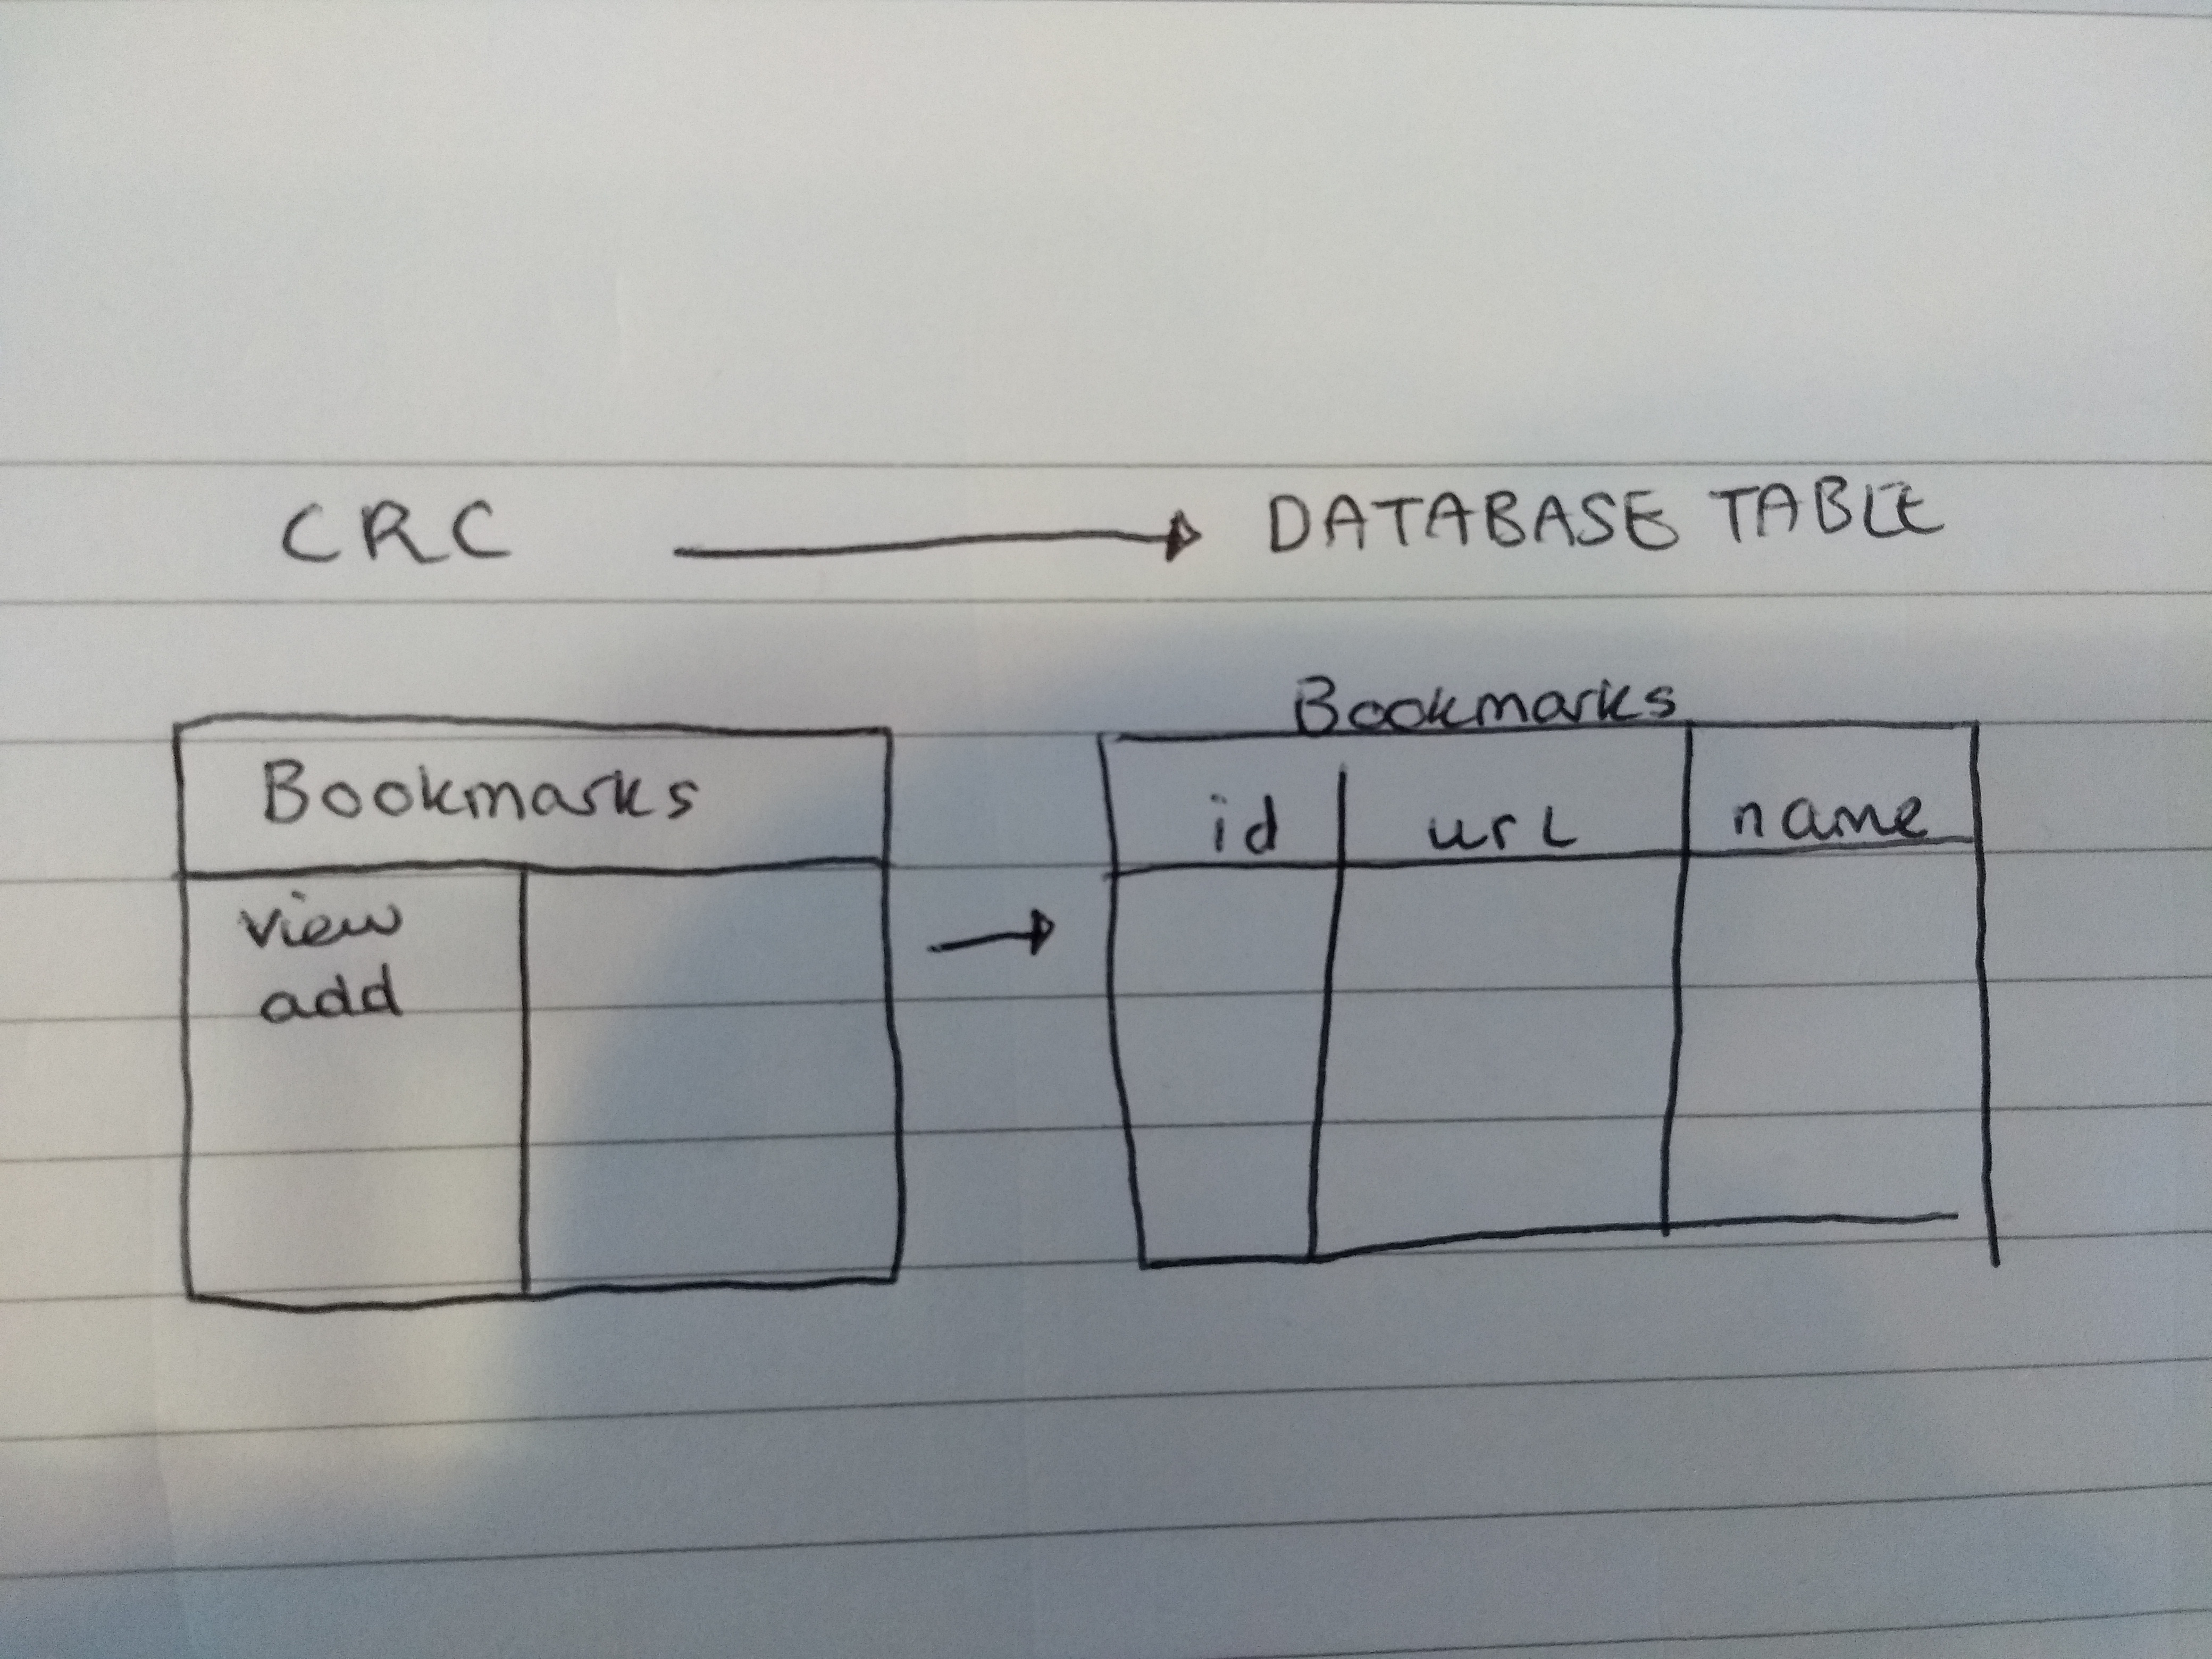 CRC → DATABASE TABLE
Bookmarks
view
add
→
Bookmarks
id url name